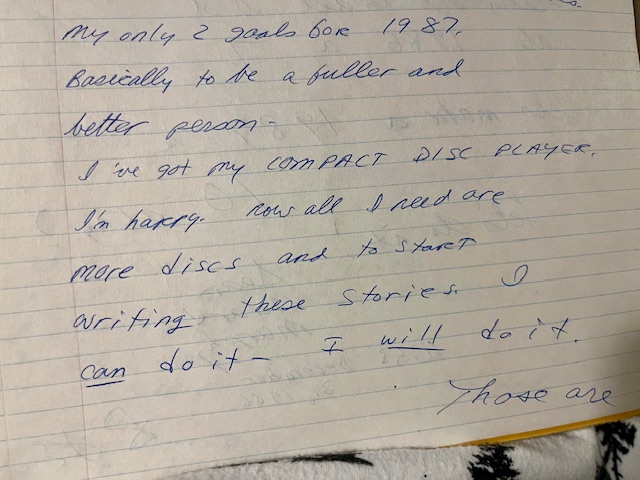 my only 2 goals for 1987.
Basically to be a fuller and
better person -
I've got my COMPACT DISC PLAYER.
I'm happy. Now all I need are
more discs and to start
writing these stories. I
can do it - I will do it.
Those are